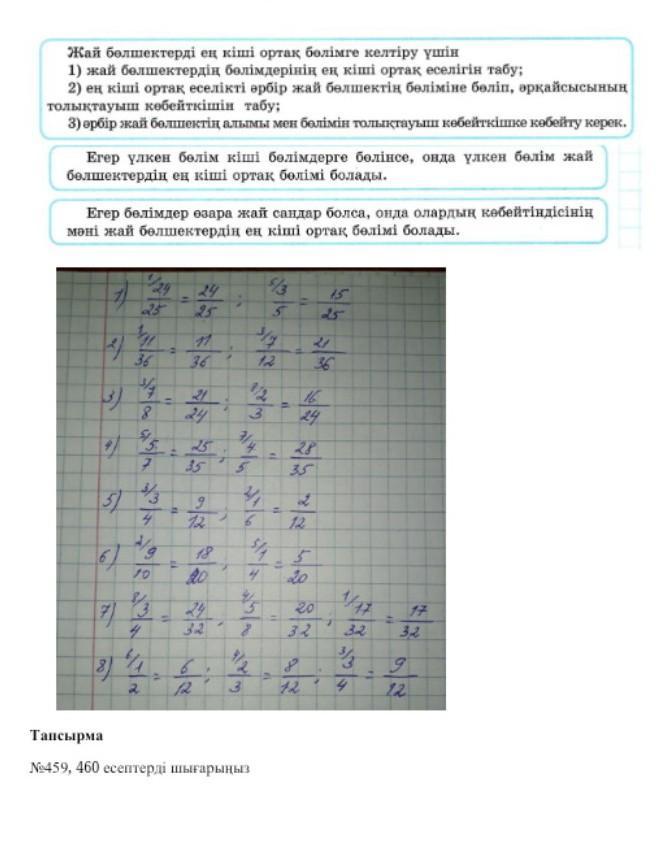 Жай бөлшектерді ең кіші ортақ бөлімге келтіру үшін
1) жай бөлшектердің бөлімдерінің ең кіші ортақ еселігін табу;
2) ең кіші ортақ еселікті әрбір жай бөлшектің бөліміне бөліп, әрқайсысының
толықтауыш көбейткішін табу;
3) әрбір жай бөлшектің алымы мен бөлімін толықтауыш көбейткішке көбейту керек.
Егер үлкен бөлім кіші бөлімдерге бөлінсе, онда үлкен бөлім жай
бөлшектердің ең кіші ортақ бөлімі болады.
Егер бөлімдер өзара жай сандар болса, онда олардың көбейтіндісінің
мәні жай бөлшектердің ең кіші ортақ бөлімі болады.
1) ¹/24/25 = 24/25 ; ⁵/3/5 = 15/25
2) ¹/11/36 = 11/36 ; ³/7/12 = 21/36
3) ³/7/8 = 21/24 ; ⁸/2/3 = 16/24
4) ⁵/5/7 = 25/35 ; ⁷/4/5 = 28/35
5) ³/3/4 = 9/12 ; ²/1/6 = 2/12
6) ²/9/10 = 18/20 ; ⁵/1/4 = 5/20
7) ⁸/3/4 = 24/32 , ⁴/5/8 = 20/32 ; ¹/17/32 = 17/32
8) ⁶/1/2 = 6/12 ; ⁴/2/3 = 8/12 ; ³/3/4 = 9/12
Тапсырма
№459, 460 есептерді шығарыңыз